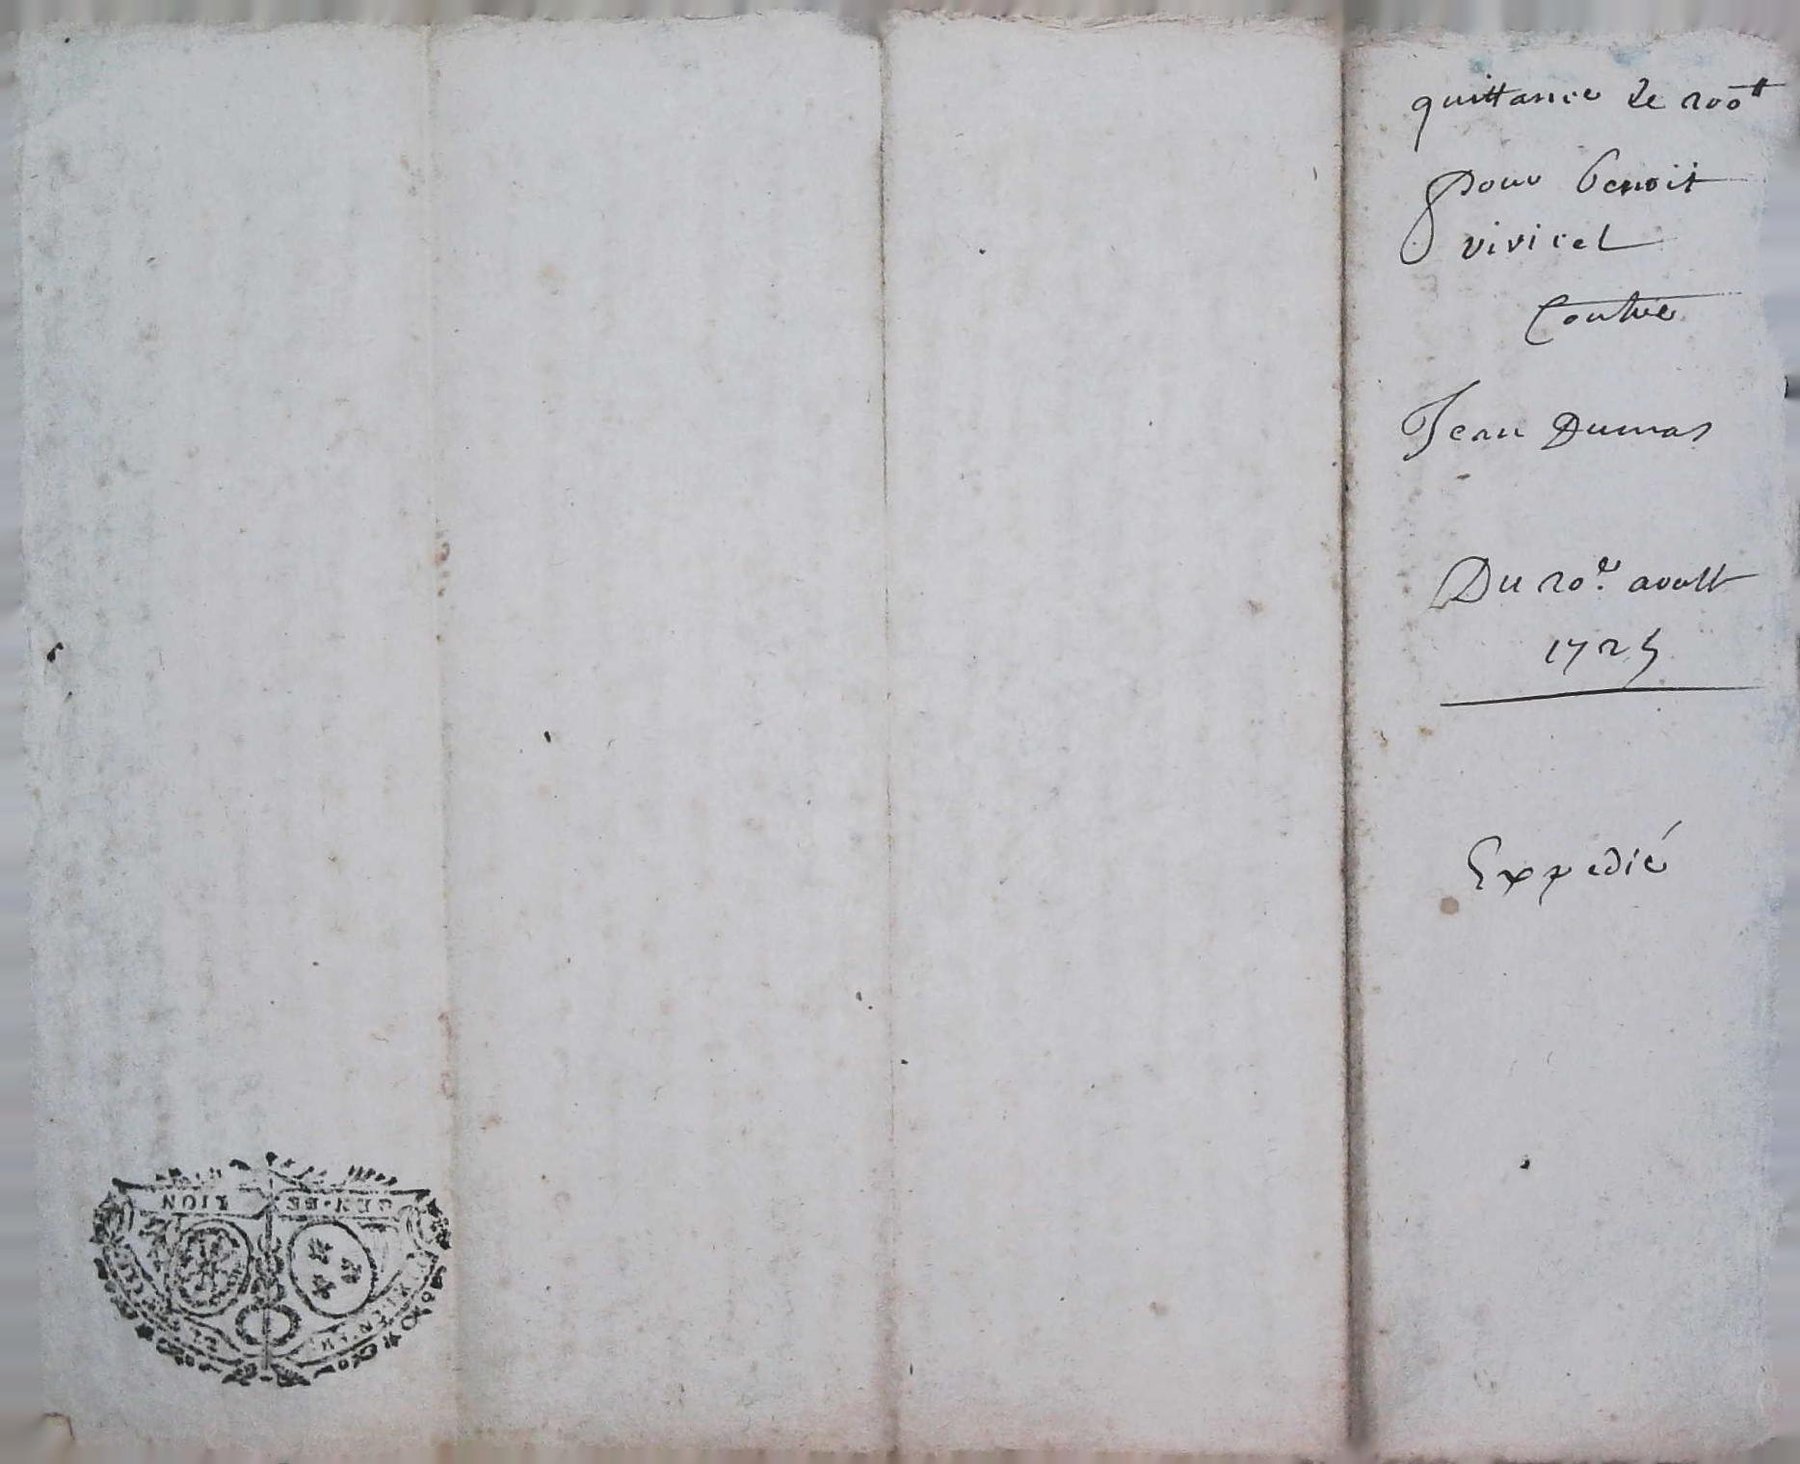 quittance de 200tt
pour benoit
vivicel
Contre
Jean Dumas
Du 20e. aoust
1725
Expedié
GEN. DE LION